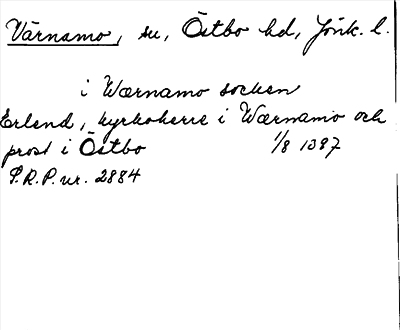 Värnamo, sn, Östbo hd, Jönk. l.
i Wærnamo socken
Erlend, kyrkoherre i Wærnamo och
prost i Östbo 1/8 1387
S.R.P. nr. 2884